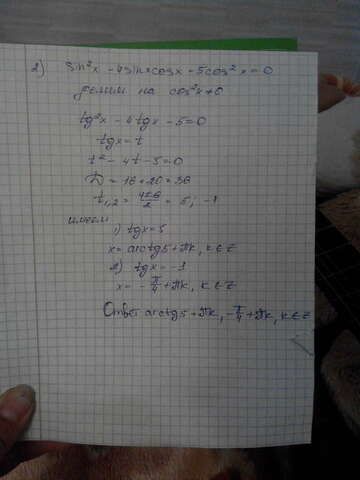 2) sin²x - 4sinxcosx - 5cos²x = 0
делим на cos²x ≠ 0
tg²x - 4tgx - 5 = 0
tgx = t
t² - 4t - 5 = 0
D = 16 + 20 = 36
t₁,₂ = (4±6)/2 = 5; -1
имеем
1) tgx = 5
x = arctg5 + πk, k ∈ Z
2) tgx = -1
x = -π/4 + πk, k ∈ Z
Ответ arctg5 + πk, -π/4 + πk, k ∈ Z